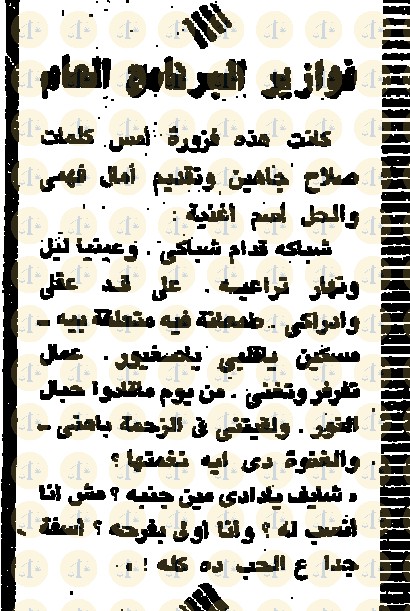 فوازير البرنامج العام
كانت هذه فزورة أمس كلمات
صلاح جاهين وتقديم آمال فهمى
والحل اسم اغنية :
شباكه قدام شباكى . وعينيا ليل
ونهار تراعيـه . على قـد عقلى
وادراكى . طمعانة فيه متعلقة بيه ـ
مسكين ياقلبى ياصغيور . عمال
تفرفر وتغنى . من يوم ماقادوا حبال
النور . ولقيتنى فى الزحمة باعنى ـ
والغنوة دى ايه نغمتها ؟
ـ شايف يادادى مين جنبه ؟ مش انا
أنسب له ؟ وانا أولى بفرحه ؟ آسفة
جدا ع الحب ده كله ! .